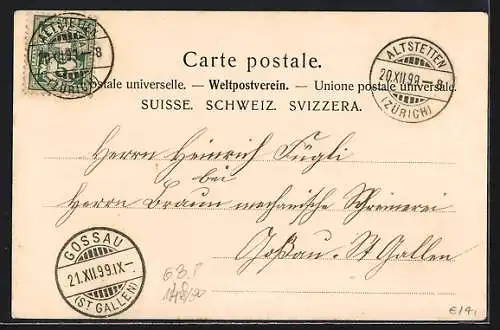 ALTSTETTEN
(ZÜRICH)
5
Carte postale.
ALTSTETTEN
20.XII.99.–8
(ZÜRICH)
postale universelle. — Weltpostverein. — Unione postale universale.
SUISSE. SCHWEIZ. SVIZZERA.
Herrn Heinrich Fügli
bei
Herrn Braun mechanische Schreinerei
Goßau. St Gallen
GOSSAU
21.XII.99.IX–
(ST GALLEN)